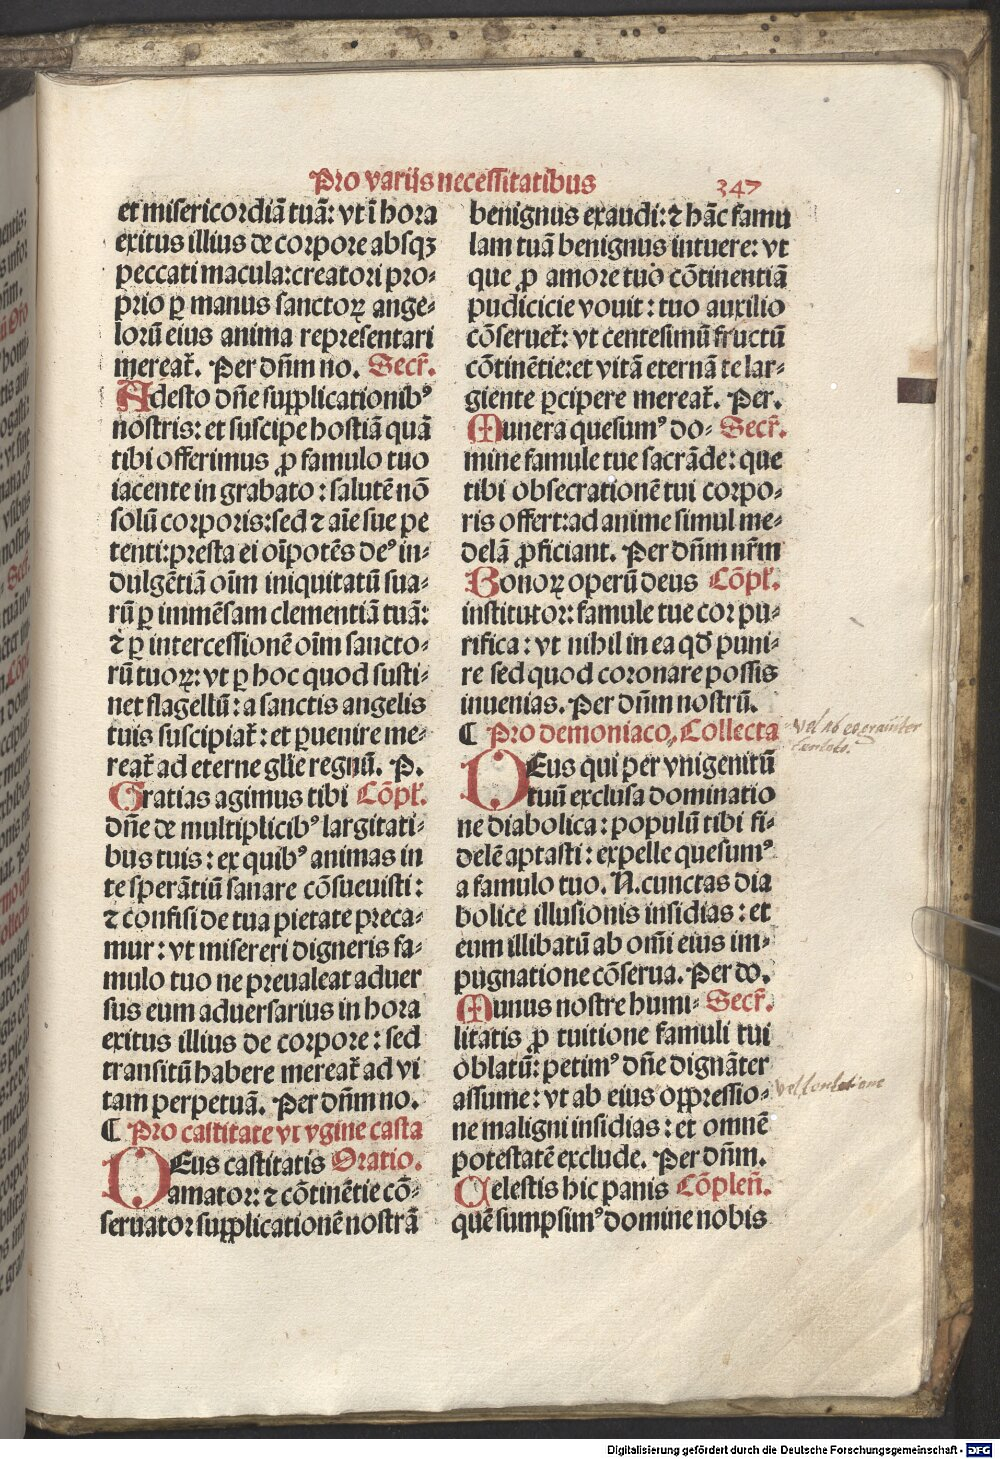 Pro varijs necessitatibus 347
et misericordiā tuā: vt ī hora
exitus illius de corpore absqꝫ
peccati macula: creatori pro-
prio ꝑ manus sanctoꝝ ange-
lorū eius anima representari
mereat̄. Per dn̄m no. Secr̄.
Adesto dn̄e supplicationibꝰ
nostris: et suscipe hostiā quā
tibi offerimus ꝓ famulo tuo
iacente in grabato: salutē nō
solū corporis: sed ⁊ aīe sue pe
tenti: presta ei oīpotēs deꝰ in-
dulgētiā oīm iniquitatū sua-
rū ꝑ immēsam clementiā tuā:
⁊ ꝑ intercessionē oīm sancto-
rū tuoꝝ: vt ꝑ hoc quod susti-
net flagellū: a sanctis angelis
tuis suscipiat̄: et ꝑuenire me-
reat̄ ad eterne glīe regnū. P.
Gratias agimus tibi Cōpl̄.
dn̄e de multiplicibꝰ largitati-
bus tuis: ex quibꝰ animas in
te sperātiū sanare cōsueuisti:
⁊ confisi de tua pietate preca-
mur: vt misereri digneris fa-
mulo tuo ne preualeat aduer
sus eum aduersarius in hora
exitus illius de corpore: sed
transitū habere mereat̄ ad vi
tam perpetuā. Per dn̄m no.
¶ Pro castitate vt vgine casta
DEus castitatis Oratio.
amator: ⁊ cōtinētie cō-
seruator supplicationē nostrā
benignus exaudi: ⁊ hāc famu
lam tuā benignus intuere: vt
que ꝓ amore tuo cōtinentiā
pudicicie vouit: tuo auxilio
cōseruet̄: vt centesimū fructū
cōtinētie: et vitā eternā te lar-
giente ꝑcipere mereat̄. Per.
Munera quesumꝰ do- Secr̄.
mine famule tue sacrāde: que
tibi obsecrationē tui corpo-
ris offert: ad anime simul me-
delā ꝓficiant. Per dn̄m nr̄m
Bonoꝝ operū deus Cōpl̄.
institutor: famule tue cor pu-
rifica: vt nihil in ea qd̄ puni-
re sed quod coronare possis
inuenias. Per dn̄m nostrū.
¶ Pro demoniaco, Collecta
DEus qui per vnigenitū
tuū exclusa dominatio
ne diabolica: populū tibi fi-
delē aptasti: expelle quesumꝰ
a famulo tuo. N. cunctas dia
bolice illusionis insidias: et
eum illibatū ab om̄i eius im-
pugnatione cōserua. Per do.
Munus nostre humi- Secr̄.
litatis ꝓ tuitione famuli tui
oblatū: petimꝰ dn̄e dignāter
assume: vt ab eius oppressio-
ne maligni insidias: et omnē
potestatē exclude. Per dn̄m.
Celestis hic panis Cōplen̄.
quē sumpsimꝰ domine nobis
vel ab eo
vel
Digitalisierung gefördert durch die Deutsche Forschungsgemeinschaft - DFG